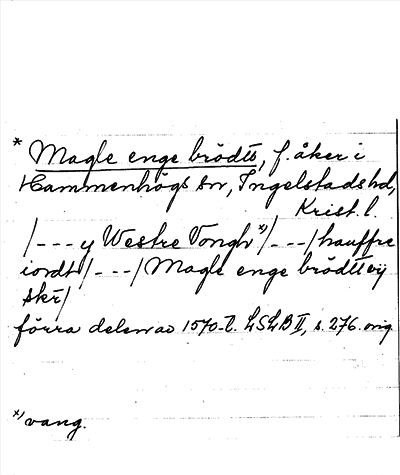 * Magle enge brödtt, f. åker i
Hammenhögs sn, Ingelstads hd,
Krist. l.
/---y Westre Vongh x)/---/hauffre
iordt/---/Magle enge brödtt vij
skr/
förra delen av 1570-t. LSLB II, s. 276. orig
x) vang.